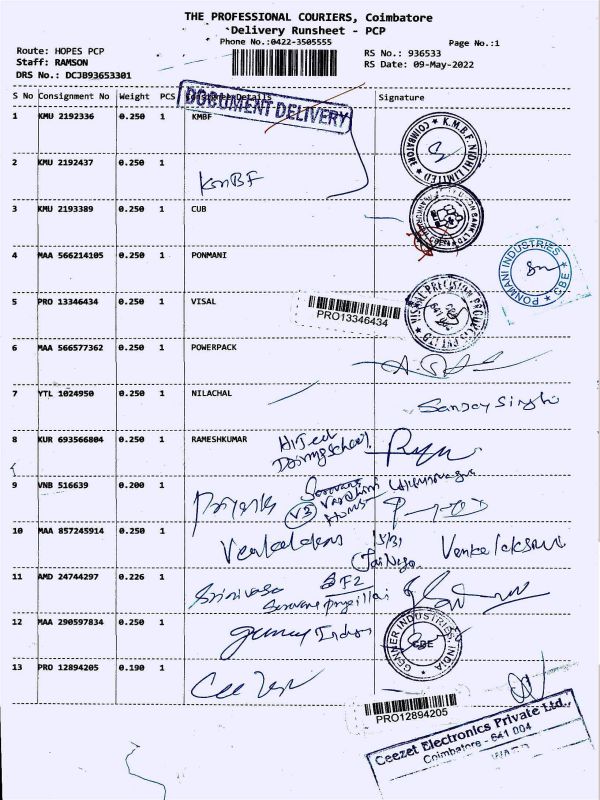 THE PROFESSIONAL COURIERS, Coimbatore
Delivery Runsheet - PCP
Phone No.:0422-3505555
Page No.:1
Route: HOPES PCP
RS No.: 936533
Staff: RAMSON
RS Date: 09-May-2022
DRS No.: DCJB93653301
S No Consignment No Weight PCS Consignee Details Signature
DOCUMENT DELIVERY
1 KMU 2192336 0.250 1 KMBF
COIMBATORE * K.M.B.F. NIDHI LIMITED *
2 KMU 2192437 0.250 1 KMBF
3 KMU 2193389 0.250 1 CUB
4 MAA 566214105 0.250 1 PONMANI
PONMANI INDUSTRIES * CBE *
5 PRO 13346434 0.250 1 VISAL
PRO13346434
VISAL PRECISION PRODUCTS PVT LTD
6 MAA 566577362 0.250 1 POWERPACK
7 YTL 1024950 0.250 1 NILACHAL
Sanjay Singh
8 KUR 693566804 0.250 1 RAMESHKUMAR
9 VNB 516639 0.200 1
V3
10 MAA 857245914 0.250 1
11 AMD 24744297 0.226 1
F2
12 MAA 290597834 0.250 1
GENNER INDUSTRIES INDIA
CBE
13 PRO 12894205 0.190 1
PRO12894205
Ceezet Electronics Private Ltd.,
Coimbatore - 641 004